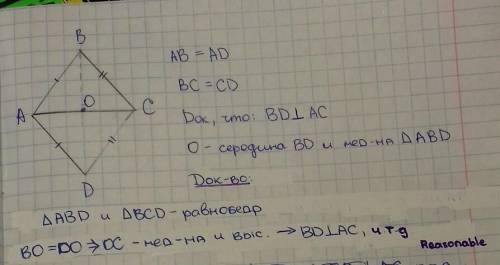 B
AB = AD
BC = CD
A O C
Док, что: BD⊥AC
O - середина BD и мед-на △ABD
D
Док-во:
△ABD и △BCD - равнобедр
BO = DO ⇒ OC - мед-на и выс. → BD⊥AC, ч.т.д
Reasonable